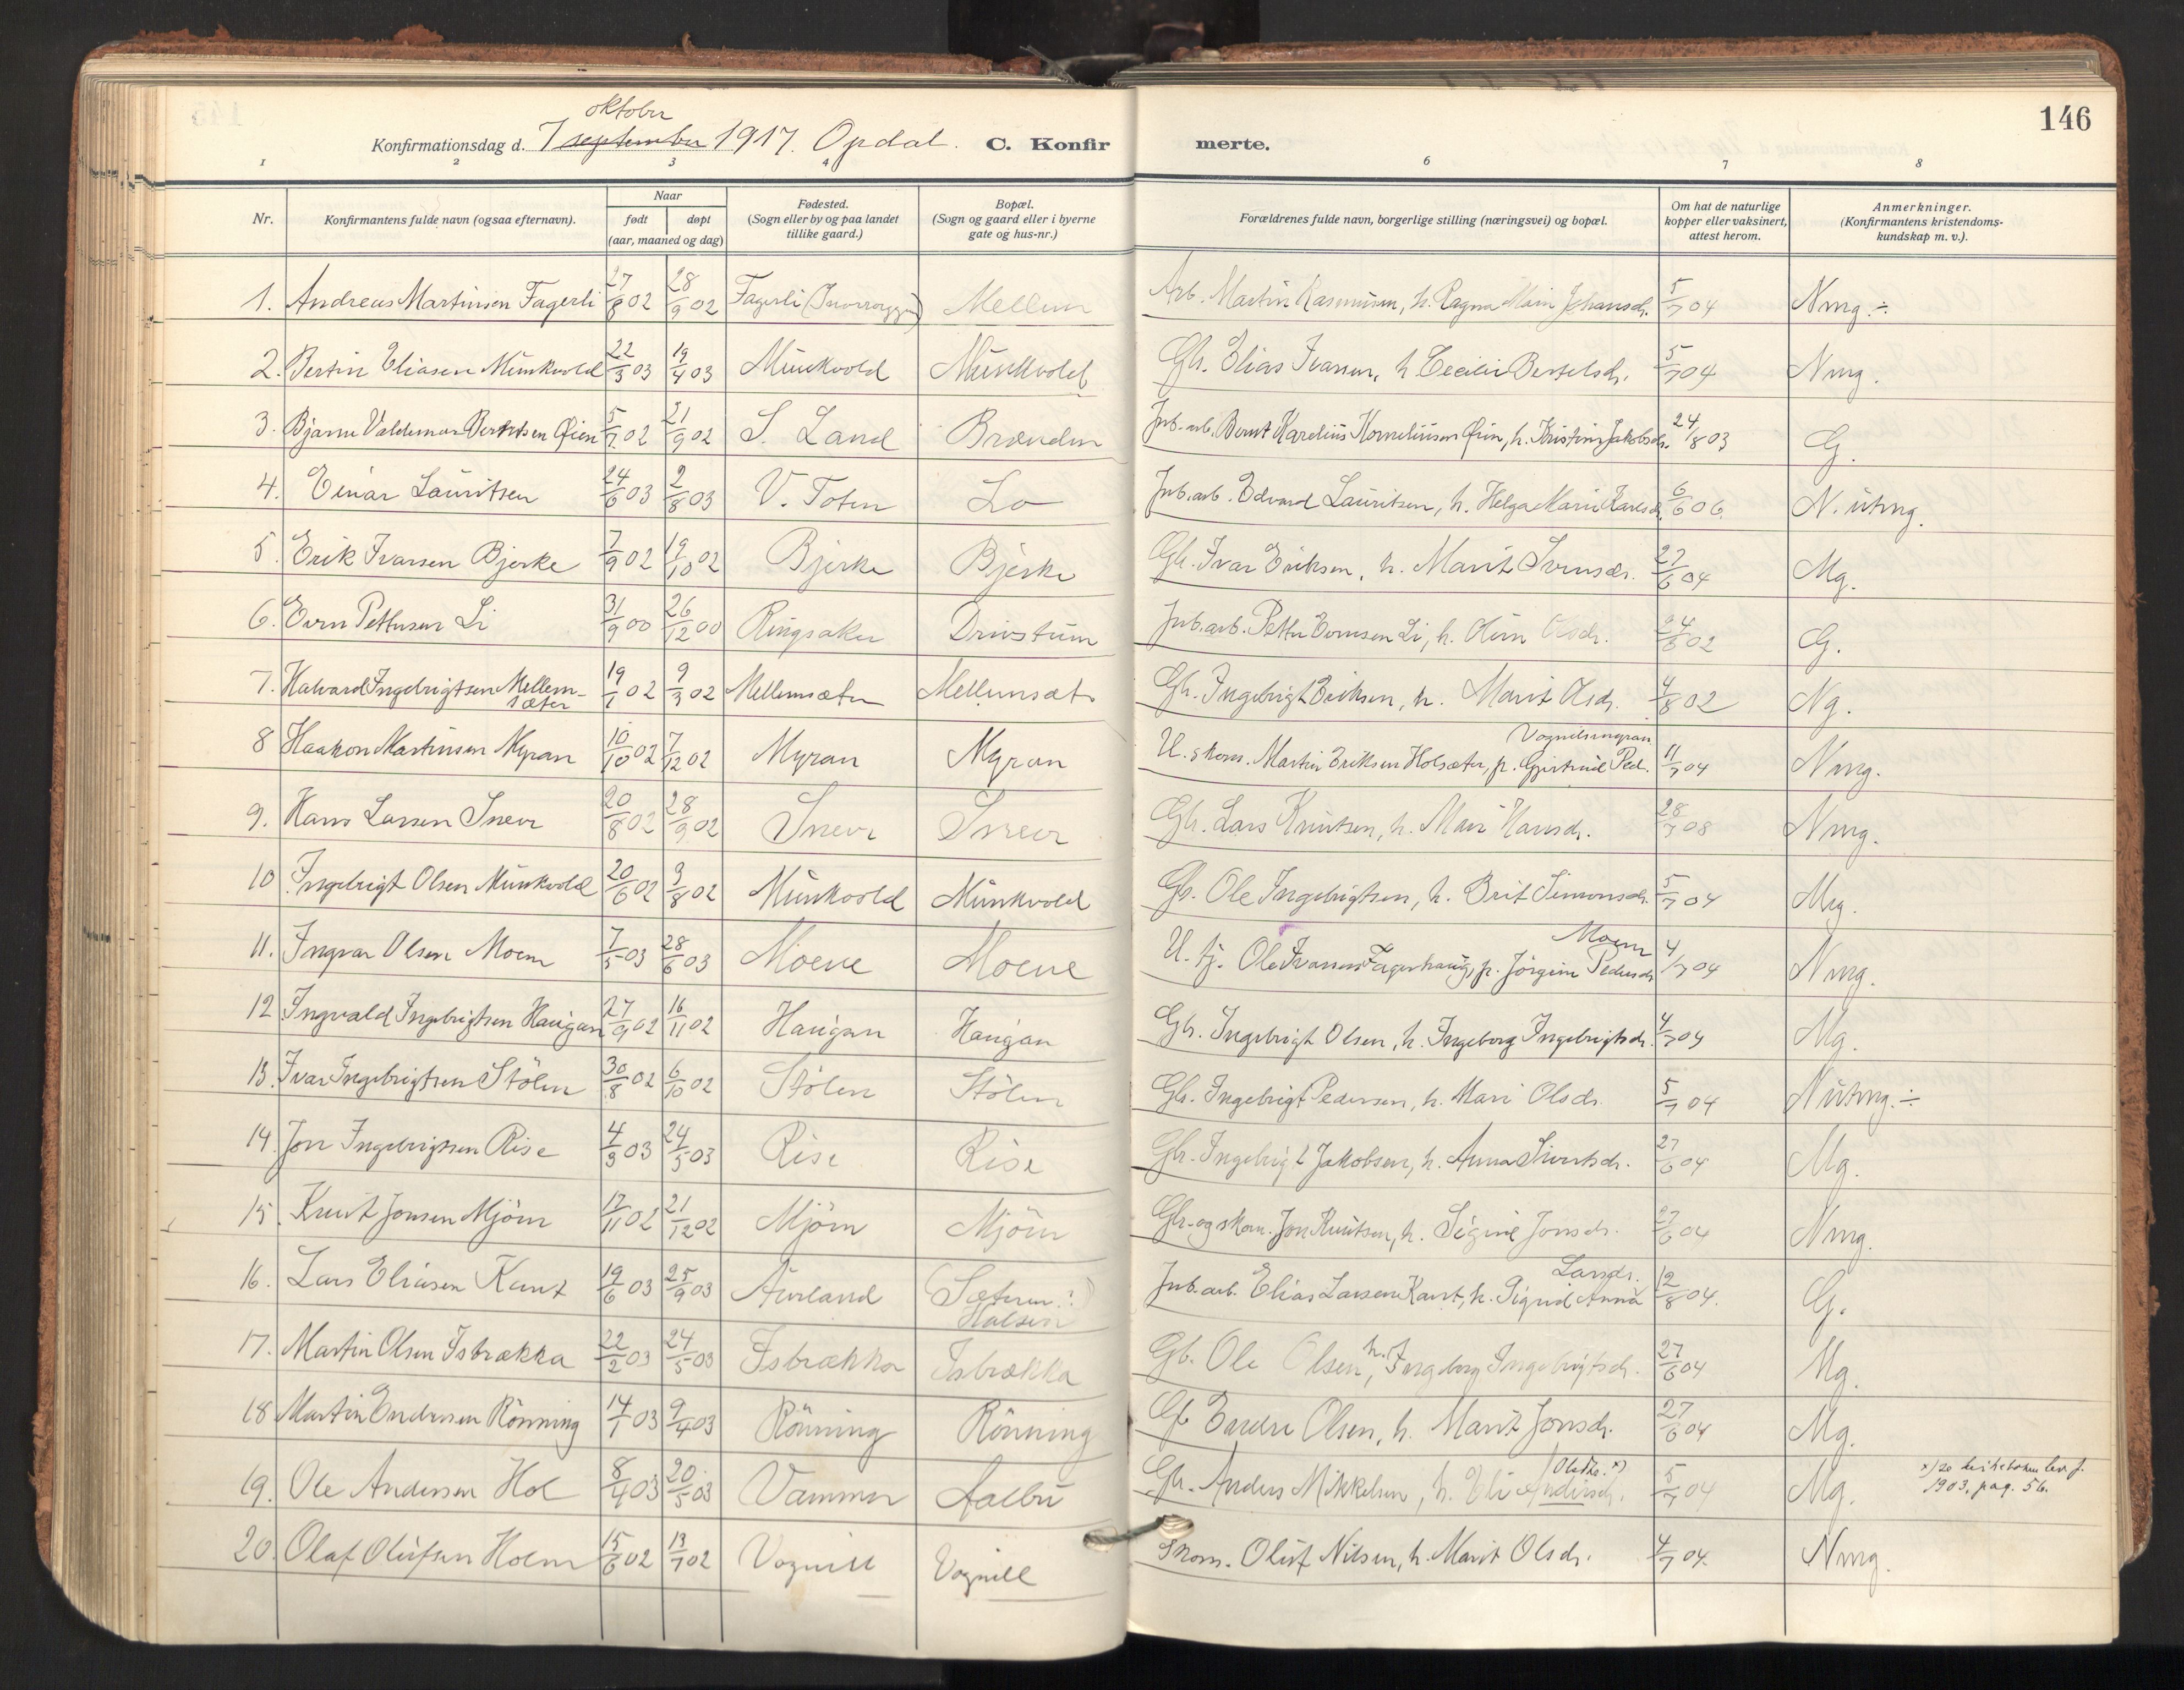 146
oktober
Konfirmationsdag d. 7 september 1917. Opdal. C. Konfirmerte.
1 2 3 4 6 7 8
Nr. Konfirmantens fulde navn (ogsaa efternavn). Naar født døpt (aar, maaned og dag) Fødested. (Sogn eller by og paa landet tillike gaard.) Bopæl. (Sogn og gaard eller i byerne gate og hus-nr.) Forældrenes fulde navn, borgerlige stilling (næringsvei) og bopæl. Om hat de naturlige kopper eller vaksinert, attest herom. Anmerkninger. (Konfirmantens kristendomskundskap m. v.).
1. Andreas Martinsen Fagerli 27/8 02 28/9 02 Fagerli Mellem Arb. Martin Rasmusen, h. Ragna Johansdr. 5/7 04 Nmg. ÷
2. Bertin Eliasen Munkvold 22/3 03 19/4 03 Munkvold Munkvold Gbr. Elias Ivarsen, h. Cecilie Bertelsdr. 5/7 04 Nmg.
3. Bjarne Valdemar Berntsen Øien 5/7 02 21/9 02 S. Land Brænden Jnb. arb. Bernt Karelius Korneliusen Øien, h. Kristine Jakobsdr. 24/8 03 G.
4. Einar Lauritsen 24/6 03 2/8 03 V. Toten Lo Jnb. arb. Edvard Lauritsen, h. Helga Marie Karlsdr. 6/6 06. N. utmg.
5. Erik Ivarsen Bjerke 7/9 02 19/10 02 Bjerke Bjerke Gbr. Ivar Eriksen, h. Marit Svensdr. 27/6 04 Mg.
6. Even Pettersen Li 31/9 00 26/12 00 Ringsaker Drivstum Jnb. arb. Petter Evensen Li, h. Oline Olsdr. 24/6 02 G.
7. Halvard Ingebrigtsen Mellemsæter 19/1 02 9/3 02 Mellemsæter Mellemsæt. Gbr. Ingebrigt Eriksen, h. Marit Olsdr. 4/8 02 Ng.
8 Haakon Martinsen Myran 10/10 02 7/12 02 Myran Myran U. skom. Martin Eriksen Holsæter, p. Gjertrud Ped. Vognilsmyran 11/7 04 Nmg.
9. Hans Larsen Snevr 20/8 02 28/9 02 Snevr Snevr Gbr. Lars Knutsen, h. Mari Hansdr. 28/7 08 Nmg.
10 Ingebrigt Olsen Munkvold 20/6 02 3/8 02 Munkvold Munkvold Gbr. Ole Ingebrigtsen, h. Brit Simonsdr. 5/7 04 Mg.
11. Ingvar Olsen Moene 7/5 03 28/6 03 Moene Moene U. tj. Ole Ivarsen Fagerhaug, p. Jörgine Pedersdr. Moene 4/7 04 Nmg.
12 Ingvald Ingebrigtsen Haugan 27/9 02 16/11 02 Haugan Haugan Gbr. Ingebrigt Olsen, h. Ingeborg Ingebrigtsdr. 4/7 04 Mg.
13. Ivar Ingebrigtsen Stölen 30/8 02 6/10 02 Stölen Stölen Gbr. Ingebrigt Pedersen, h. Mari Olsdr. 5/7 04 Nutmg. ÷
14. Jon Ingebrigtsen Rise 4/3 03 24/5 03 Rise Rise Gbr. Ingebrigt Jakobsen, h. Anna Sivertsdr. 27/6 04 Mg.
15. Knut Jonsen Mjöen 17/11 02 21/12 02 Mjöen Mjöen Gbr. og skom. Jon Knutsen, h. Sigrid Jonsdr. 27/6 04 Nmg.
16. Lars Eliasen Kant 19/6 03 25/9 03 Aurland (Sæteren: Halsen) Jnb. arb. Elias Larsen Kant, h. Sigrid Anna Larsdr. 12/8 04. G.
17. Martin Olsen Isbrækka 22/2 03 24/5 03 Isbrækka Isbrækka Gb. Ole Olsen, h. Ingeborg Ingebrigtsdr. 27/6 04 Mg.
18 Martin Endresen Rönning 14/1 03 9/4 03 Rönning Rönning Gb Endre Olsen, h. Marit Jonsdr. 27/6 04 Mg.
19. Ole Andersen Hol 8/4 03 20/5 03 Vammer Aalbu Gbr. Anders Mikkelsen, h. Eli Andersdr. Olsdtr. x) 5/7 04 Mg. x) se kirkeboken lev. f. 1903, pag. 56.
20. Olaf Olufsen Holm 15/6 02 13/7 02 Vognill Vognill Skom. Oluf Nilsen, h. Marit Olsdr. 4/7 04. Nmg.